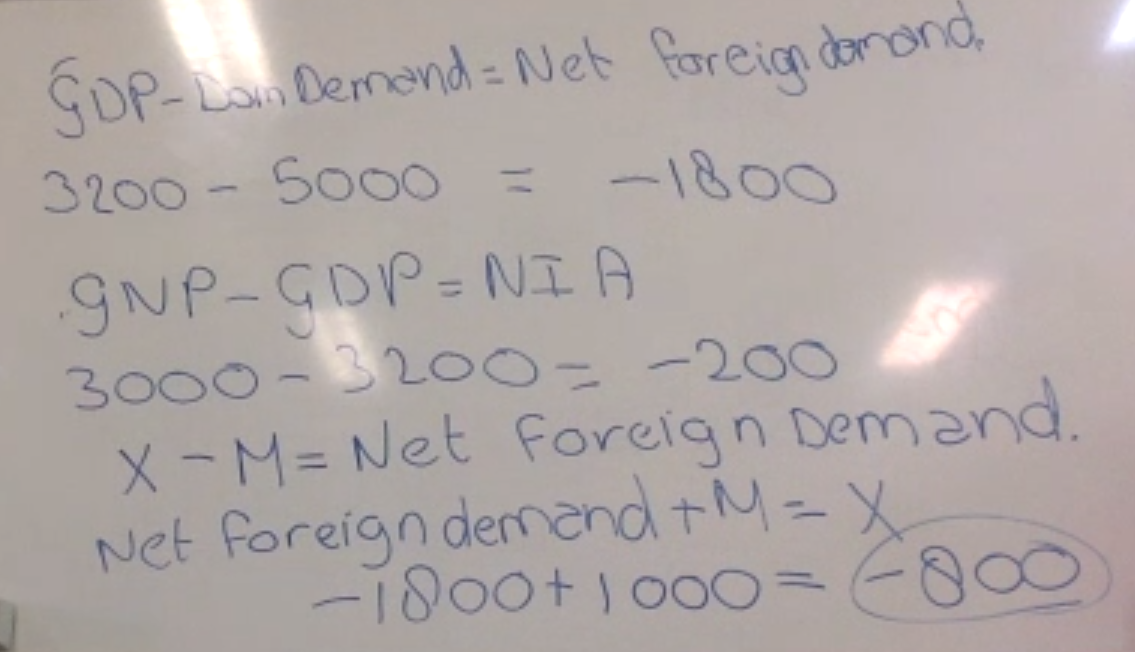 GDP - Dom Demand = Net foreign demand.
3200 - 5000 = -1800
GNP - GDP = NIA
3000 - 3200 = -200
X - M = Net Foreign Demand.
Net foreign demand + M = X
-1800 + 1000 = -800